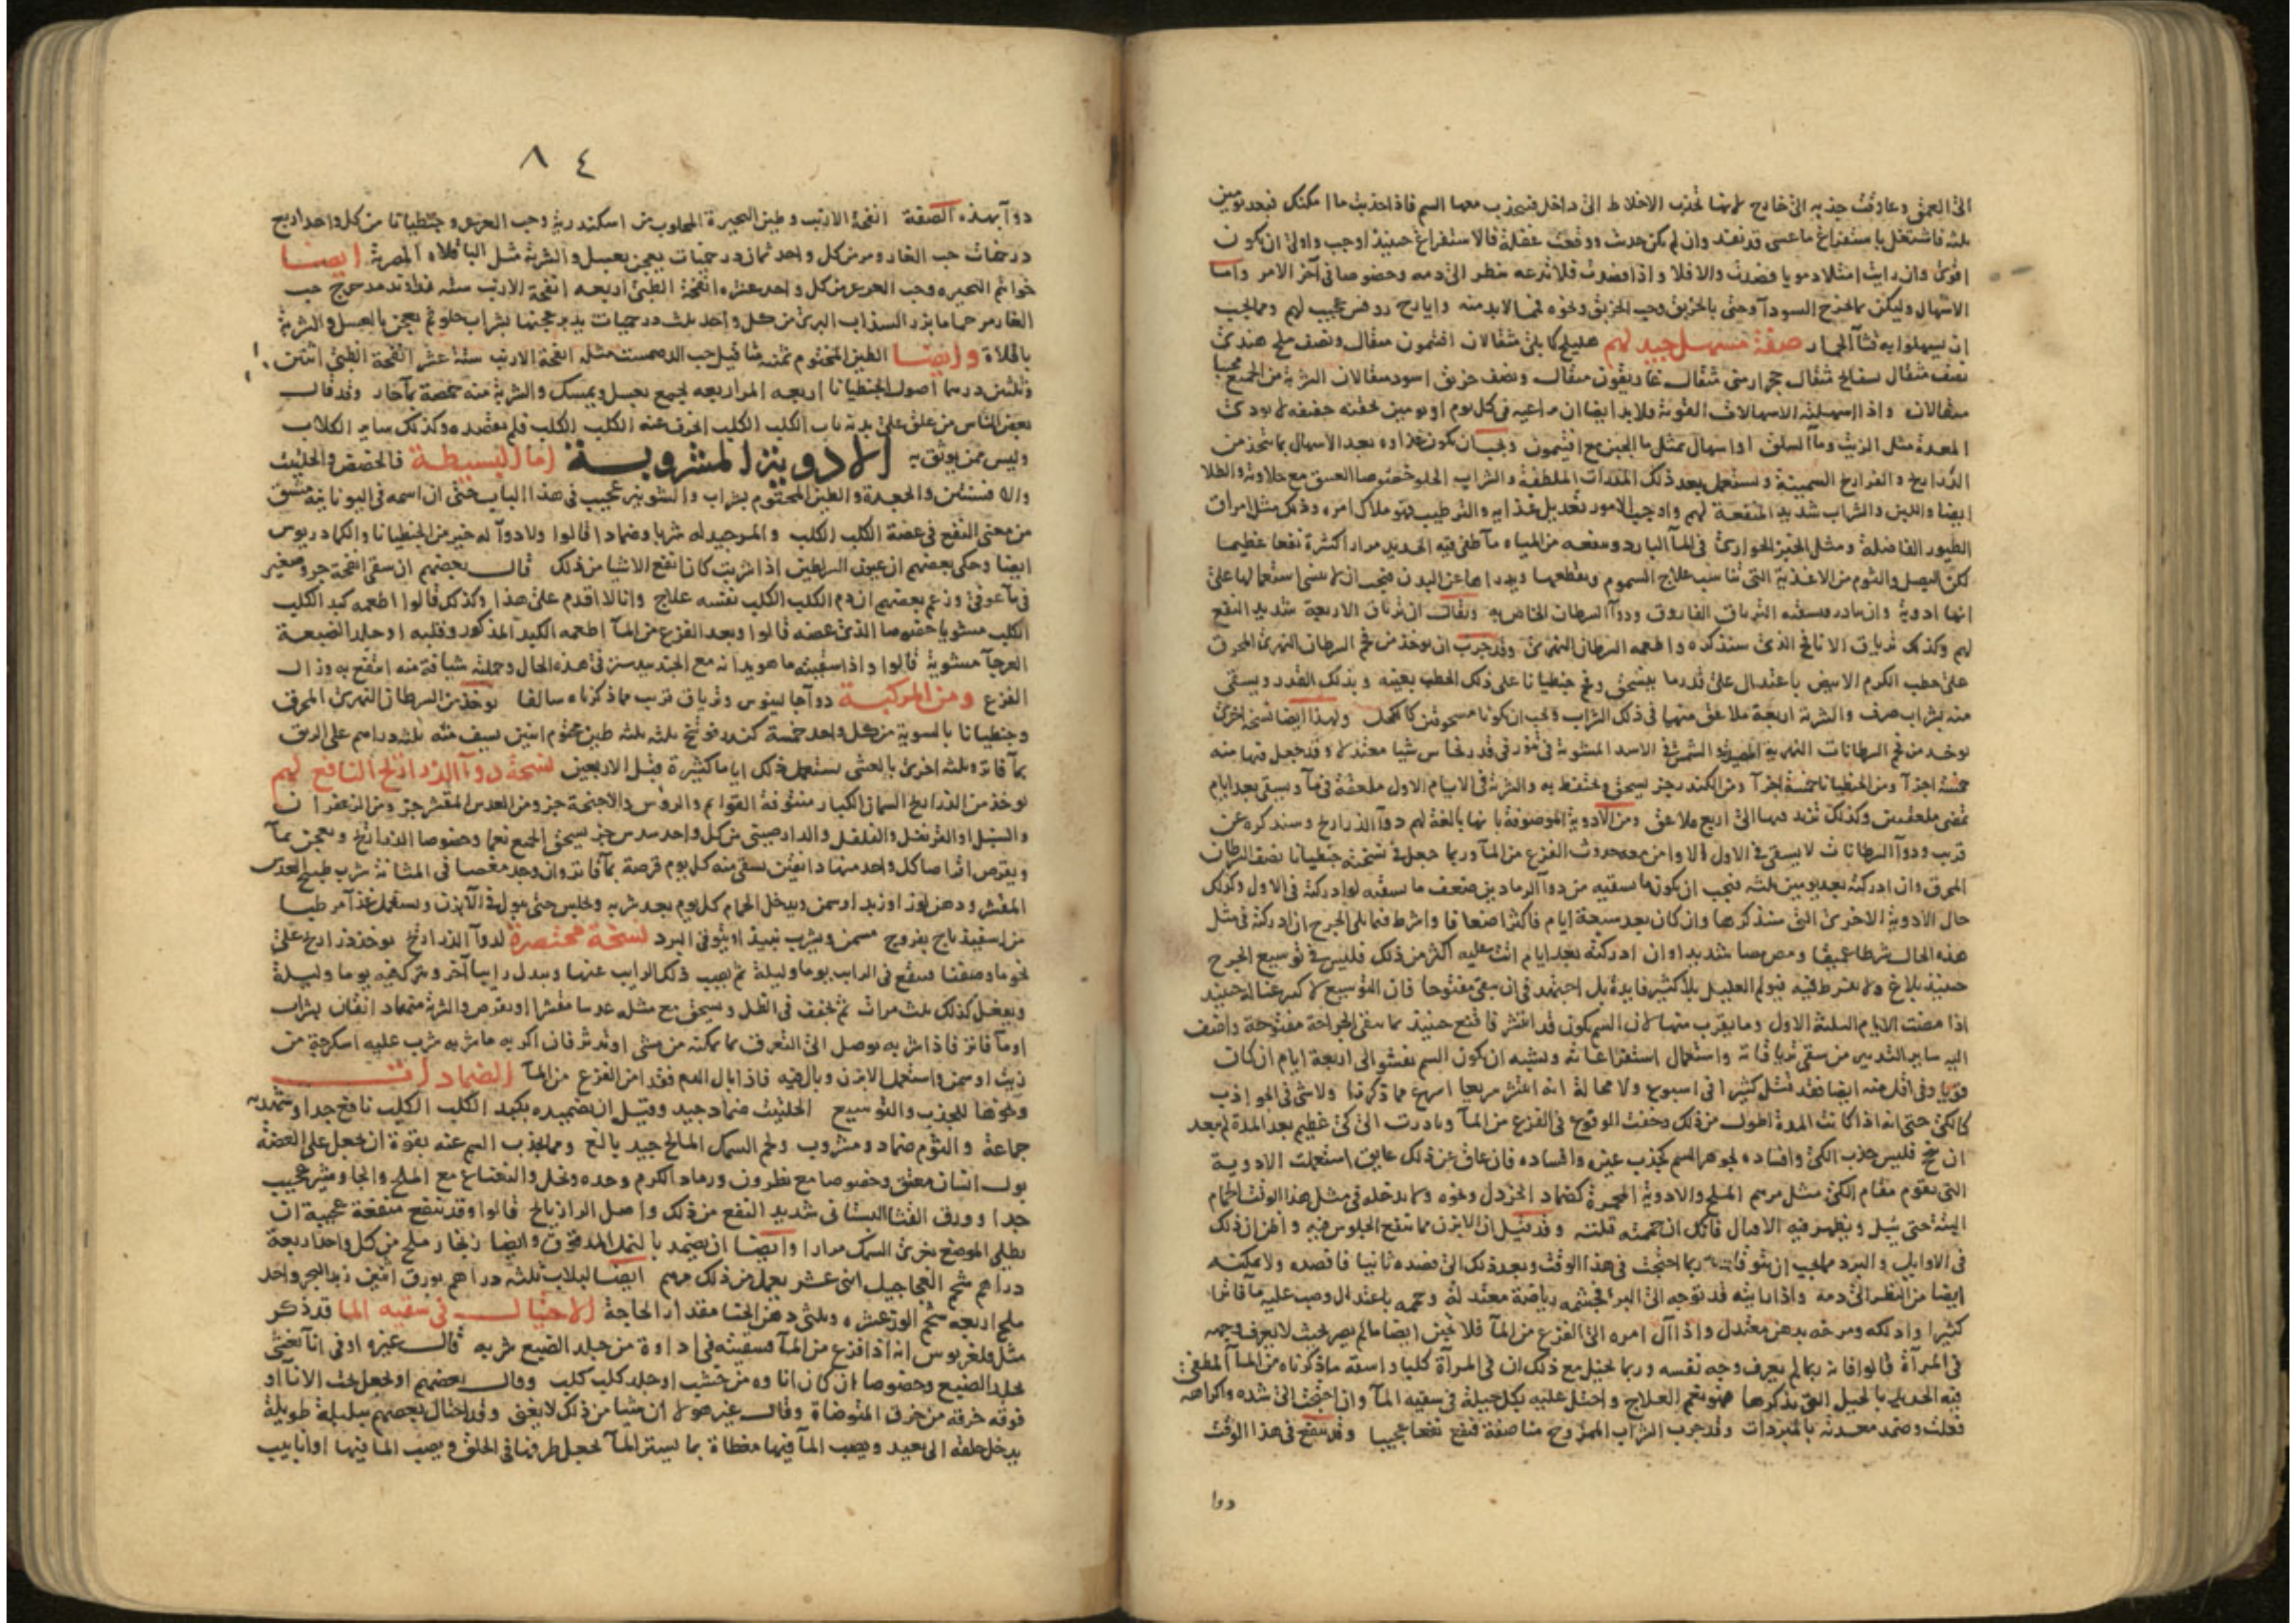 الى العمق وعاوقت جذبه الى خارج لانها تجذب الاخلاط الى داخل فينجذب معها السم فاذا جذبت ما امكنك فبعد يومين
ثلثه فاشتغل باستفراغ ما عسى قد نفذ وان لم يكن جذب ووقعت غفلة فالاستفراغ حينئذ اوجب واولى ان يكون
اقوى وان رايت امتلا دمويا فصدت والا فلا واذا فصدت فلا تدعه ينظر الى دمه وخصوصا فى آخر الامر واما
الاسهال وليكن بما يخرج السودآ وحتى بالخربق وحب الخربق ونحوه لما لابد منه وايارج روفس عجيب لهم ومما يجب
ان يسهلوا به قثآ الحمار صفة مسهل جيد لهم هليلج كابلى مثقالان افتيمون مثقال ونصف ملح هندى
نصف مثقال بسفايج مثقال حجر ارمنى مثقال غاريقون مثقال ونصف خربق اسود مثقالان الشربة من الجميع محببا
مثقالان واذا اسهلته الاسهالات القوية فلابد ايضا ان تراعيه فى كل يوم او يومين بحقنه خفيفه لا تودى
المعدة مثل الزيت ومآ السلق او اسهال بمثل ما الجبن مع افتيمون ويجب ان يكون غذاوه بعد الاسهال بما يتخذ من
الدراج و الفراريج السمينة وتستعمل بعد ذلك المدرات الملطفة والشراب الحلو خصوصا العتيق مع حلاوته والطلا
ايضا واللبن والشراب شديد المنفعة لهم واوجب الامور تعديل غذايه والترطيب فهو ملاك امره وذلك مثل امراق
الطيور الفاضلة ومثل الخبز الحوارى فى المآ البارد وينفعه من المياه مآ طفى فيه الحديد مرارا كثيرة نفعا عظيما
لكن البصل والثوم من الاغذية التى تناسب علاج السموم ويقطعها ويدراها عن البدن فيجب ان لا ينسى استعمالها على
انها ادوية وان بادر وسقيه الترياق الفاروق ودوآ السرطان الخاص به ويقال ان ترياق الاربعة شديد النفع
لهم وكذلك ترياق الانافح الذى سنذكره واطعمه السرطان النهرى وقد جرب ان يوخذ من فحم السرطان النهرى المحرق
على حطب الكرم الابيض باعتدال على قدر ما ينسحق ومن جنطيانا على ذلك الحطب بعينه وبذلك القدر ويسقى
منه بشراب صرف والشربة اربعة ملاعق منهما فى ذلك الشراب ويجب ان يكونا مسحوقين كالكحل ولهذا ايضا نسخة اخرى
يوخذ من فحم السرطانات النهريه المصيده و الشمس فى الاسد المشوية فى تنور فى قدر نحاس شيا معتدلا وقد جعل فيها منه
خمسة اجزآ ومن الجنطيانا خمسة اجزآ ومن الكندر جز يسحق ويحتفظ به والشربة فى الايام الاول ملعقة فى مآ ويسقى بعد ايام
تمضى ملعقتين وكذلك تزيد فيها الى اربع ملاعق ومن الادوية الموصوفة بانها بالغة لهم دوآ الذراريح وسنذكره عن
قريب ودوآ السرطانات لا يسقى فى الاول الا وامن معه حدوث الفزع من المآ وربما جعل فى نسخته جنطيانا نصف السرطان
المحرق وان ادركته بعد يومين ثلثه فيجب ان يكون ما تسقيه من دوآ الرمادين ضعف ما تسقيه لو ادركته فى الاول وكذلك
حال الادوية الاخرى التى سنذكرها وان كان بعد سبعة ايام فاكثر اضعافا واشرط فيما يلى الجرح ان ادركته فى مثل
هذه الحال شرطا عميقا ومص مصا شديدا وان ادركته بعد ايام اتت عليه اكثر من ذلك فليس فى توسيع الجرح
حينئذ بلاغ ولا تفرط فيه فيولم العليل بلا كثير فايدة بل اجتهد فى ان يبقى مفتوحا فان التوسيع لا كبير غنا له حينئذ
اذا مضت الايام الثلثة الاول وما يقرب منها لان السم يكون قد انتشر فاقنع حينئذ بما يبقى الجراحة مفتوحة واضف
اليه ساير التدبير من سقى ترياقاته واستعمال استفراغاته ويشبه ان يكون السم يفشو الى اربعة ايام ان كان
قويا وفى اقل منه ايضا فقد قتل كثيرا فى اسبوع ولا محالة انه انتشر سريعا اسرع مما ذكرنا ولا شى فى الجواذب
كالكى حتى انه اذا كانت المدة اطول من ذلك وخفت الوقوع فى الفزع من المآ وبادرت الى كى عظيم بعد المدة لم يبعد
ان ينجح فليس جذب الكى وافساده لجوهر السم كجذب غيره وافساده فان عاق عن ذلك عايق استعملت الادوية
التى تقوم مقام الكى مثل مرهم الملح والادوية المحمرة كضماد الخردل ونحوه ولا تدخله فى مثل هذا الوقت الحمام
البتة حتى يبل ويظهر فيه الاقبال فانك ان حممته قتلته وقد قيل ان الابزن مما ينفع الجلوس فيه واظن ان ذلك
فى الاوايل والبرد مما يجب ان يتوقاه ربما احتجت فى هذا الوقت وبعد ذلك الى فصده ثانيا فافصده ولا تمكنه
ايضا من النظر الى دمه واذا رايته قد توجه الى البر فجشمه رياضة معتدلة وحممه باعتدال وصب عليه ما فاترا
كثيرا وادلكه ومرخه بدهن معتدل واذا آل امره الى الفزع من المآ فلا تجبن ايضا ما لم يصر بحيث لا يعرف وجهه
فى المرآة قالوا فانه ربما لم يعرف وجه نفسه وربما تخيل مع ذلك ان فى المرآة كلبا واسقه ماذكرناه من المآ المطفى
فيه الحديد بالحيل التى نذكرها فهو نعم العلاج واحتل عليه بكل حيلة فى سقيه المآ وان احتجت الى شده واكراهه
فعلت وضمد معدته بالمبردات وقد جرب الشراب الممزوج مناصفة فنفع نفعا عجيبا وقد ينفع فى هذا الوقت
دوا
٨٤
دوآ بهذه الصفة انفحة الارنب وطين البحيرة المجلوب من اسكندرية وحب العرعر وجنطيانا من كل واحد اربع
درخمات حب الغار ومر من كل واحد ثمان درخميات يعجن بعسل والشربة مثل الباقلاه المصرية ايضا
خواتم البحيره وحب العرعر من كل واحد عشره انفحة الظبى اربعه انفحة الارنب سته حب
الغار مر حماما بزر السذاب البرى من كل واحد ثلث درخميات يدبر عجنها بشراب حلو ثم يعجن بالعسل والشربة
باقلاة وايضا الطين المختوم ثمنه مثاقيل حب مثله انفحة الارنب ستة عشر انفحة الظبى اثنين
وثلثين درهما اصول الجنطيانا اربعه المر اربعه يجمع بعسل ويمسك والشربة منه حمصة بمآ حار وقد قال
بعض الناس من علق على بدنه ناب الكلب الكلب انحرف عنه الكلب الكلب فلم يقصده وكذلك ساير الكلاب
وليس ممن يوثق به الادوية المشروبة اما البسيطة فالحضض والحلتيت
والافسنتين والجعدة والطين المختوم بشراب والشونيز عجيب فى هذا الباب حتى ان اسمه فى اليونانية مشتق
من معنى النفع فى عضة الكلب الكلب والمر جيد له شربا وضمادا قالوا ولا دوآ له خير من الجنطيانا والكمادريوس
ايضا وحكى بعضهم ان عيون السراطين اذا شربت كان انفع الاشيا من ذلك قال بعضهم ان سقى انفحة جرو صغير
فى مآ عوفى وزعم بعضهم ان دم الكلب الكلب نفسه علاج وانا لا اقدم على هذا وكذلك قالوا اطعمه كبد الكلب
الكلب مشويا خصوصا الذى عضه قالوا وبعد الفزع من المآ اطعمه الكبد المذكور وقلبه او جلد الضبعة
العرجآ مشوية قالوا واذا سقيته ما هويدانه مع الجندبيدستر فى هذه الحال وحملته شيافة منه انتفع به وزال
الفزع ومن المركبة دوآ جالينوس وترياق قريب مما ذكرناه سالفا يوخذ من السرطان النهرى المحرق
وجنطيانا بالسوية من كل واحد خمسة كندر فوتنج ثلثه ثلثه طين مختوم اثنين يسف منه ثلثه دراهم على الريق
بمآ فاتر وثلثه اخرى بالعشى يستعمل ذلك اياما كثيرة قبل الاربعين نسخة دوآ الذراريح النافع لهم
يوخذ من الذراريح السمان الكبار منتوفة القوايم والروس والاجنحة جز ومن العدس المقشر جز ومن الزعفران
والسنبل والقرنفل والفلفل والدارصينى من كل واحد سدس جز يسحق الجميع نعما وخصوصا الذراريح ويعجن بمآ
ويقرص اقراصا كل واحد منها دانقين يسقى منه كل يوم قرصة بمآ فاتر وان وجد مغصا فى المثانة شرب طبيخ العدس
المقشر ودهن لوز او زبد او سمن ويدخل الحمام كل يوم بعد شربه ويجلس حتى يبول فى الآبزن ويستعمل غذآ مرطبا
من اسفيذباج بفروج مسمن ويشرب نبيذ او يتوقى البرد نسخة مختصرة لدوآ الذراريح يوخذ ذراريح على
نحو ما وصفنا فينقع فى الرايب يوما وليلة ثم يصب ذلك الرايب عنها ويبدل رايبا آخر ويترك فيه يوما وليلة
ويفعل كذلك ثلث مرات ثم يجفف فى الظل ويسحق مع مثله عدسا مقشرا ويقرص والشربة منه دانقان بشراب
او مآ فاتر فاذا شربه توصل الى التعرق بما يمكنه من مشى او تدثر فان اكربه ما شربه شرب عليه اسكرجة من
زيت او سمن واستعمل الابزن وبال فيه فاذا بال الدم فقد امن الفزع من المآ الضمادات
ونحوها للجذب والتوسيع الحلتيت ضماد جيد وقيل ان تضميده بكبد الكلب الكلب نافع جدا وشهد به
جماعة والثوم ضماد ومشروب ولحم السمك المالح جيد بالغ ومما يجذب السم عنه بقوة ان يجعل على العضة
بول انسان معتق وخصوصا مع نطرون ورماد الكرم وحده وبخل والنعناع مع الملح والجاوشير عجيب
جدا وورق القثا البستانى شديد النفع من ذلك واصل الرازيانج قالوا وقد ينفع منفعة عجيبة ان
يطلى الموضع بغرى السمك مرارا وايضا ان يضمد بالنمل المدقوق وايضا زنجار ملح من كل واحد اربعة
دراهم شحم العجاجيل اثنى عشر يعمل من ذلك مرهم ايضا لبلاب ثلثه دراهم بورق اثنين زبد البحر واحد
ملح اربعه شحم الوز عشره وثلثى دهن الحنا مقدار الحاجة الاحتيال فى سقيه الما قد ذكر
مثل فلغريوس انه اذا فزع من المآ فسقيته فى اداوة من جلد الضبع شربه قال غيره او فى انآ يغشى
بجلد الضبع وخصوصا ان كان اناوه من خشب او جلد كلب كلب وقال بعضهم او يجعل تحت الانآ او
فوقه خرقه من خرق المتوضاة وقال غير هولا ان شيا من ذلك لا يغنى وقد احتال بعضهم ببلبلة طويلة
يدخل حلقه الى بعيد ويصب المآ فيها مغطاة بما يستر المآ يجعل طرفها فى الحلق ويصب الما فيها او انابيب